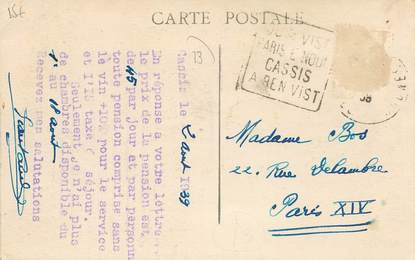 15€
CARTE POSTALE
13
CASSIS
A REN VIST
38
Madame Bos
22, Rue Delambre
Paris XIV
Cassis le 2 aout 1939
En réponse à votre lettre
le prix de la pension est
de 45 par jour et par personne
toute pension comprise sans
le vin +10% pour le service
et 1,25 taxe de séjour.
Seulement je n'ai plus
de chambres disponible du
1° au 11 aout
Recevez mes salutations